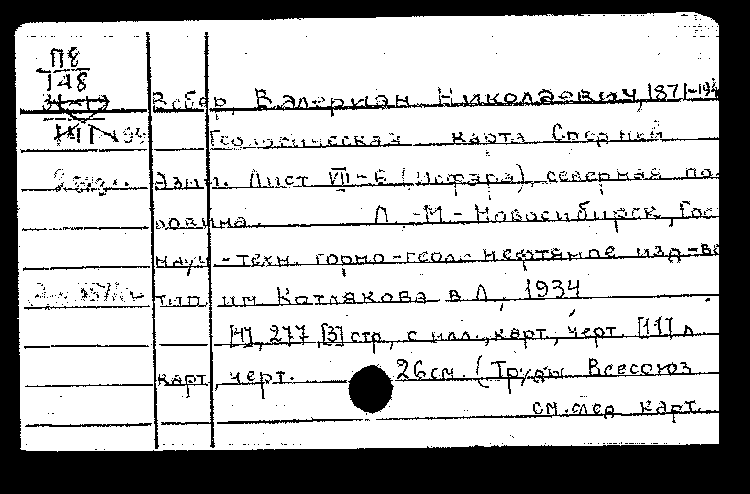 П8
148
31-19
141 194
Вебер, Валериан Николаевич, 1871-194
Геологическая карта Средней
2 экз.
Азии. Лист VII-6 (Исфара), северная по-
ловина. Л.-М.-Новосибирск, Гос
науч-техн. горно-геол. нефтяное изд-во
тип. им Котлякова в Л, 1934
[4], 277, [3] стр, с илл., карт, черт. [11] л.
карт, черт. 26см. (Труды Всесоюз
см.след карт.